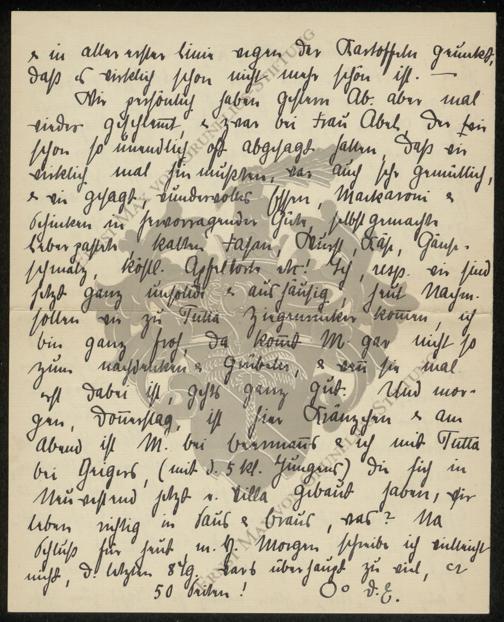 & in aller erster Linie wegen der Kartoffeln gemeckt,
daß es wirklich schon nicht mehr schön ist. —
Wir persönlich haben gestern Ab. aber mal
wieder geschlemmt, & zwar bei Frau Abel, der wir
schon so unendlich oft abgesagt hatten, daß wir
wirklich mal hin mußten, war auch sehr gemütlich,
& wie gesagt, wundervolles Essen, Makkaroni &
Schinken in hervorragender Güte, selbstgemachte
Leberpastete, kalten Fasan, Wurst, Käse, Gänse-
schmalz, köstl. Apfeltorte etc! Ich, resp. wir sind
jetzt ganz unsolide & aushäusig, heut Nachm.
sollen wir zu Tutta kommen, ich
bin ganz froh, da kommt M. gar nicht so
zum nachdenken & Grübeln, & wenn sie mal
erst dabei ist gehts ganz gut. Und mor-
gen, Donnerstag, ist hier Kränzchen & am
Abend ist M. bei & ich mit Tutta
bei Geigers, (mit d. 5 kl. Jungens) die sich in
Neu-Westend jetzt e. Villa gebaut haben, wir
leben richtig in Saus & Braus, was? Na
Schluß für heut, m. H. Morgen schreibe ich vielleicht
nicht, d. letzten Tg. wars überhaupt zu viel, ca
50 Seiten! d. E.
ERNST MAX VON GRUNELIUS-STIFTUNG